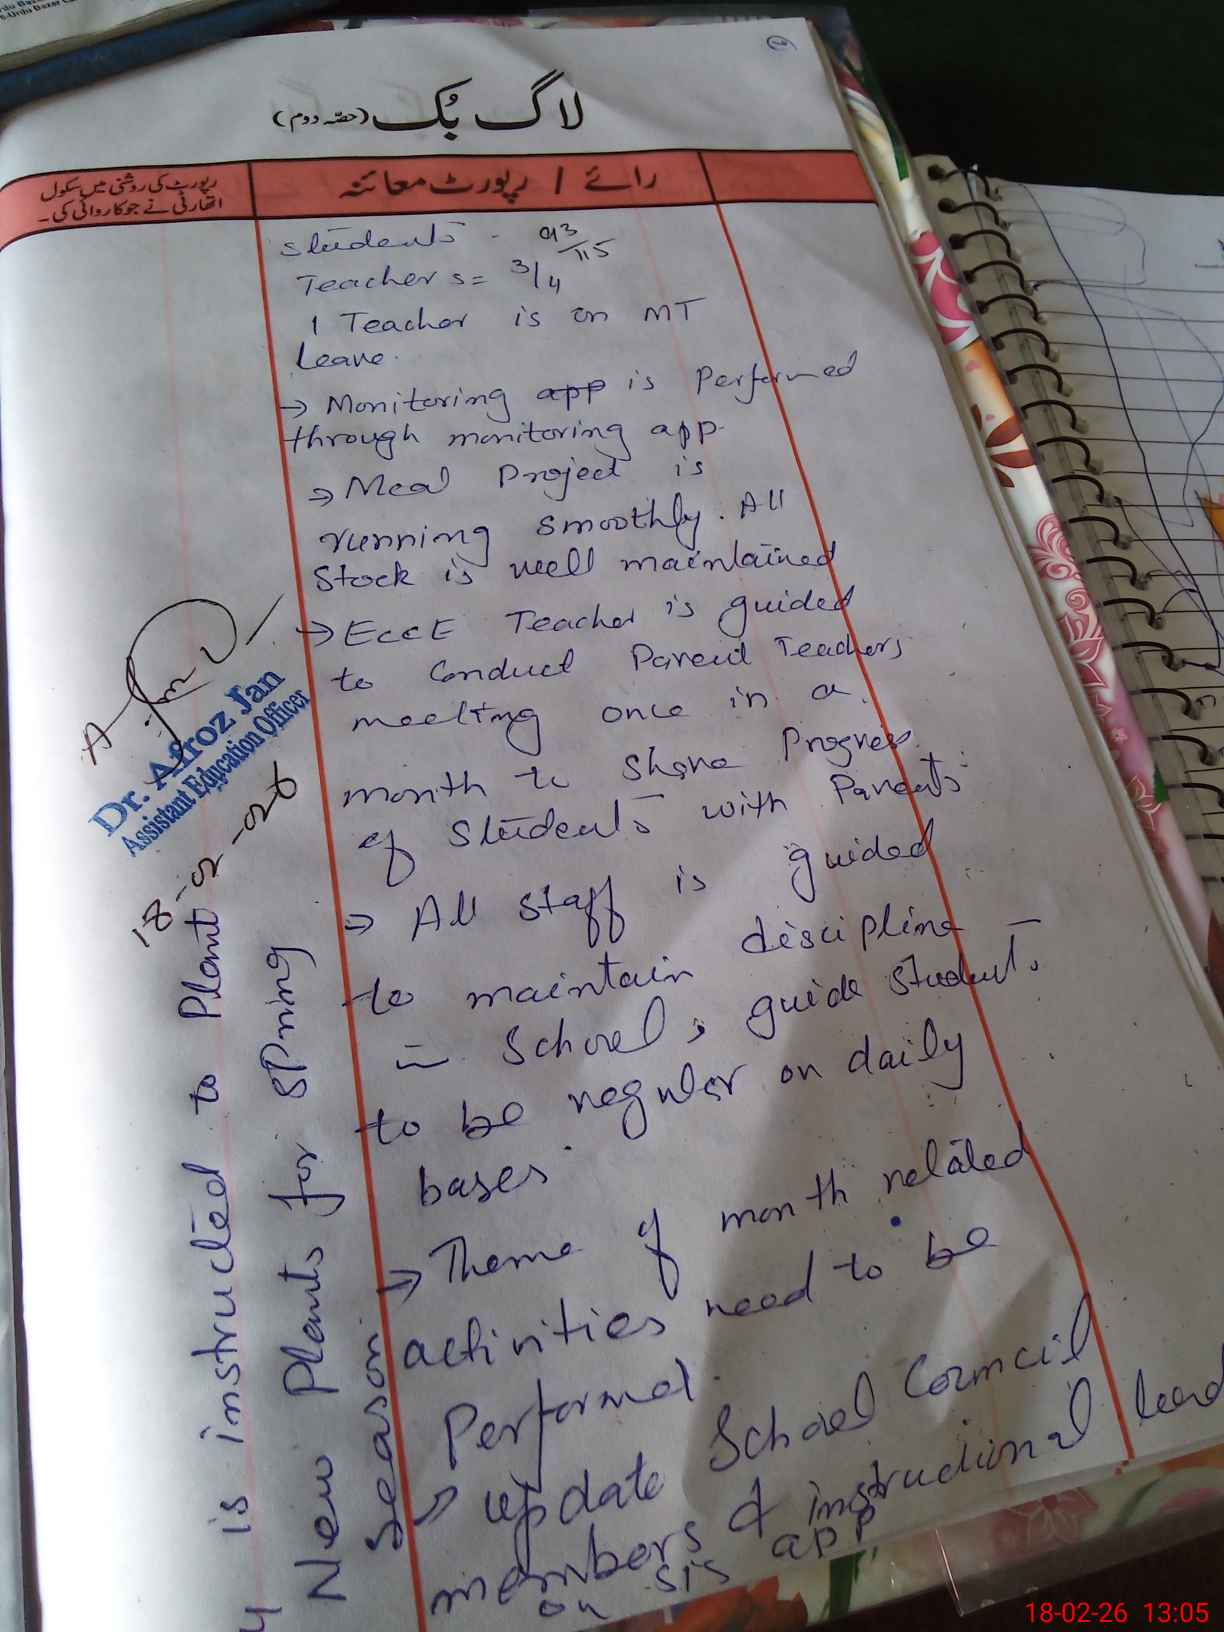 لاگ بُک (حصّہ دوم)
رائے / رپورٹ معائنہ
رپورٹ کی روشنی میں سکول
اتھارٹی نے جو کارروائی کی۔
Students - 93/115
Teachers = 3/4
1 Teacher is on MT
Leave.
→ Monitoring app is Performed
through monitoring app.
→ Meal Project is
running smoothly. All
Stock is well maintained
→ ECCE Teacher is guided
to Conduct Parent Teachers
meeting once in a
month to share Progress
of Students with Parents
→ All staff is guided
to maintain discipline
in School, guide student
to be regular on daily
bases.
→ Theme of month related
activities need to be
Performed.
→ update School Council
members & instructional lead
on SIS app
is instructed to Plant
New Plants for spring
Season.
Dr. Afroz Jan
Assistant Education Officer
18-02-026
18-02-26 13:05